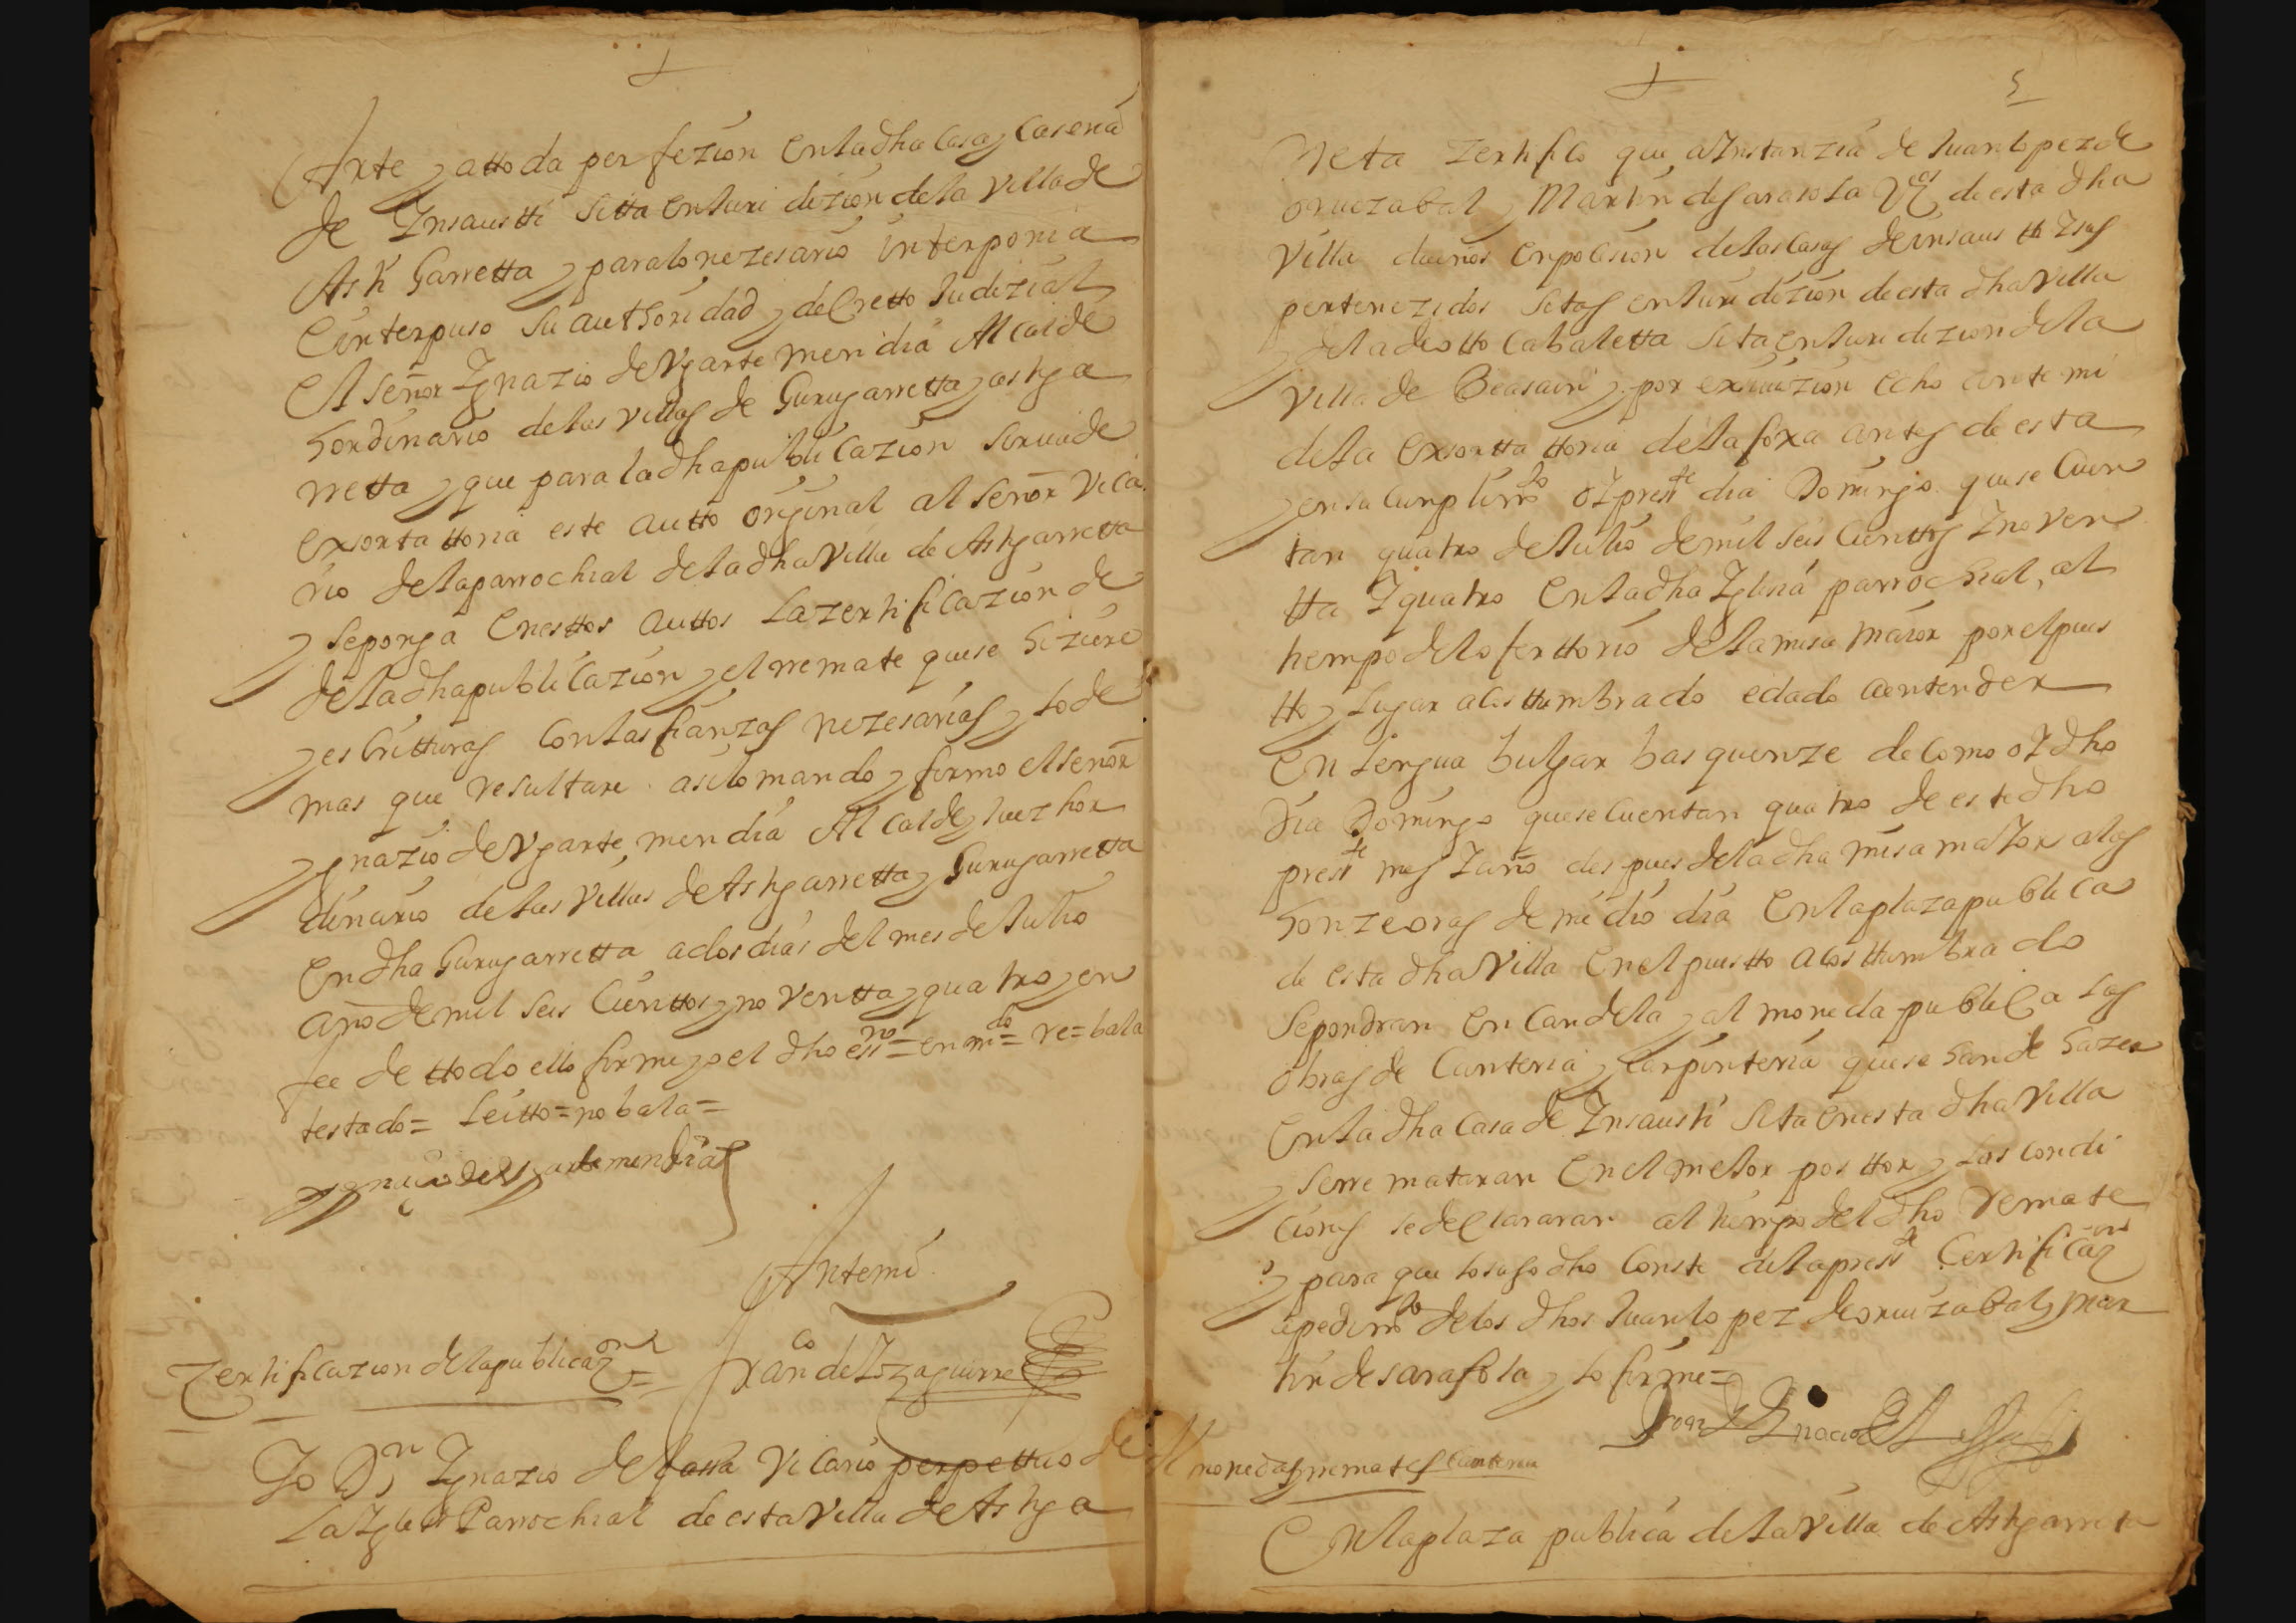 Arte y a ttoda perfezion en la dha casa y caseria
de Insausti sitta en Juridizion de la Villa de
Astigarretta y para lo nezesario interponia
e interpuso su authoridad y decretto Judizial
el señor Ignazio de Ugartemendia Alcalde
hordinario de las villas de Gurugarretta y astiga
rretta y que para la dha publicazion sirua de
exsortattoria este autto orijinal al señor Vica
rio de la parrochial de la dha Villa de Astigarretta
y se ponga en esttos auttos la zertificazion de
de la dha publicazion y el rremate que se hiziere
y escritturas con las fianzas nezesarias y lo de
mas que resultare asi lo mando y firmo el señor
Ygnazio de Ugartemendia Alcalde y Juez hor
dinario de las Villas de Astigarretta y Gurugarretta
en dha Gurugarretta a dos dias del mes de Julio
año de mil seis cienttos y noventta y quatro y en
fee de ttodo ello firme yo el dho essno = enmdo = re = bala
testado = leitto = no bala =
Ygnacio de Ugartemendia
Ante mi
Franco de Yzaguirre
Zertificazion de la publicazon =
Yo Dn Ignazio de Vicario perpettuo de
la Iglesia Parrochial de esta Villa de Astiga
5
rreta zertifico que a Instanzia de Juan lopez de
oruezabal y Martin de sarasola Vos de esta dha
Villa dueños en posesion de las casas de insausti Y sus
pertenezidos sitas en Juridizion de esta dha Villa
y de la de otto cabaletta sita en Juridizion de la
Villa de Beasain y por exsecuzion echo ante mi
de la exsorttattoria de la foxa antes de esta
y en su cumplimto oy prestte dia Domingo que se cuen
tan quatro de Julio de mil seis cienttos Y noven
tta Y quatro en la dha Iglesia parrochial, al
tiempo del oferttorio de la misa maior por el pues
tto y lugar acosttumbrado e dado a entender
en lengua bulgar basquenze de como oy dho
Dia Domingo que se cuentan quatro de este dho
prestte mes Y año despues de la dha misa maYor a las
honze oras de medio dia en la plaza publica
de esta dha Villa en el puestto acosttumbrado
se pondran en candela y almoneda publica las
obras de canteria y carpinteria que se han de hazer
en la dha casa de Insausti sita en esta dha Villa
y se rremataran en el mejor posttor y las condi
ciones se declararan al tiempo del dho remate
y para que lo susodho conste di la prestte certificaon
a pedimto de los dhos Juan lopez de oruezabal y mar
tin de sarasola y lo firme =
Almonedas y rremates canteria
En la plaza publica de la villa de Astigarreta